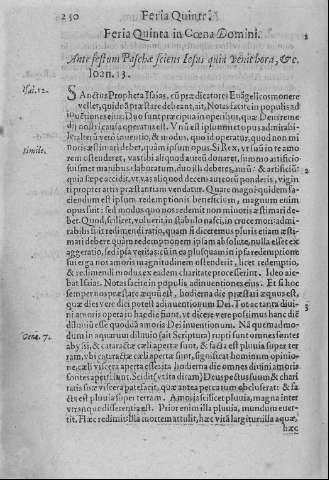 250 Feria Quinta.
Feria Quinta in Cœna Domini.
Ante festum Paschæ sciens Iesus quia venit hora, &c.
Ioan. 13.
Isai. 12.
SAnctus Propheta Isaias, cũ prædicatores Euãgelicos monere
vellet, quid ĩ prædicare debeant, ait, Notas facite in populis ad
inuẽtiones eius. Duo sunt præcipua in operibus, quæ Deus reme
dij nostri causa operatus est. Vnũ est ipsummet opus admirabi-
le: alterũ verò inuentio, & modus, quo id operatur, quod non mi
Simile.
noris æstimari debet, quàm ipsum opus. Si Rex, vt suũ in te amo
rem ostenderet, vas tibi aliquod aureũ donaret, summo artificio
suismet manibus elaboratum, duo illi debes, aurũ: & artificiũ:
quia sæpe accidit, vt vas aliquod decem aureorũ ponderis, viginti
propter artis præstantiam vendatur. Quare magni quidem fa-
ciendum est ipsum redemptionis beneficium, magnum enim
opus fuit: sed modus quo nos redemit non minoris æstimari de-
bet. Quod, scilicet, voluerit in stabulo nasci, in cruce mori: admi-
rabilis fuit redimendi ratio, quam si diceremus pluris etiam æsti-
mari debere quàm redemptionem ipsam absolutè, nulla esset ex
aggeratio, sed ipsa veritas: cũ ea plus quam in ipsa redemptione
sui erga nos amoris magnitudinem ostenderit, licet redemptio,
& redimendi modus ex eadem charitate processerint. Ideo aie-
bat Isaias, Notas facite in populis adinuentiones eius. Et si hoc
semper nos prædicare æquũ est, hodierna die prædicari æquius est,
quæ dies verè dici potest adinuentionum Dei. Tot ac tanta diui-
ni amoris opera in hac die fiunt, vt dicere vere possimus hanc diẽ
diluuiũ esse quoddã amoris Dei inuentionum. Nã quemadmo-
Gene. 7.
dum in aquarum diluuio (ait Scriptura) rupti sunt omnes fontes
abyssi, & cataractæ cæli apertæ sunt, & facta est pluuia super ter
ram, vbi cataractæ cæli apertæ sunt, significat hominum opinio-
ne, cæli viscera aperta esse: ita hodierna die omnes diuini amoris
fontes aperti sunt. Scidit (vt ita dicam) Deus pectus suum & chari
tatis suæ viscera patefecit, quæ antea peccatum obcluserat: & fa
cta est pluuia super terram. Amoris, scilicet pluuia, magna inter
vtramque differentia est. Prior enim illa pluuia, mundum euer-
tit. Hæc redimit: illa mortem attulit, hæc vitã largitur: illa aquæ,
hæc